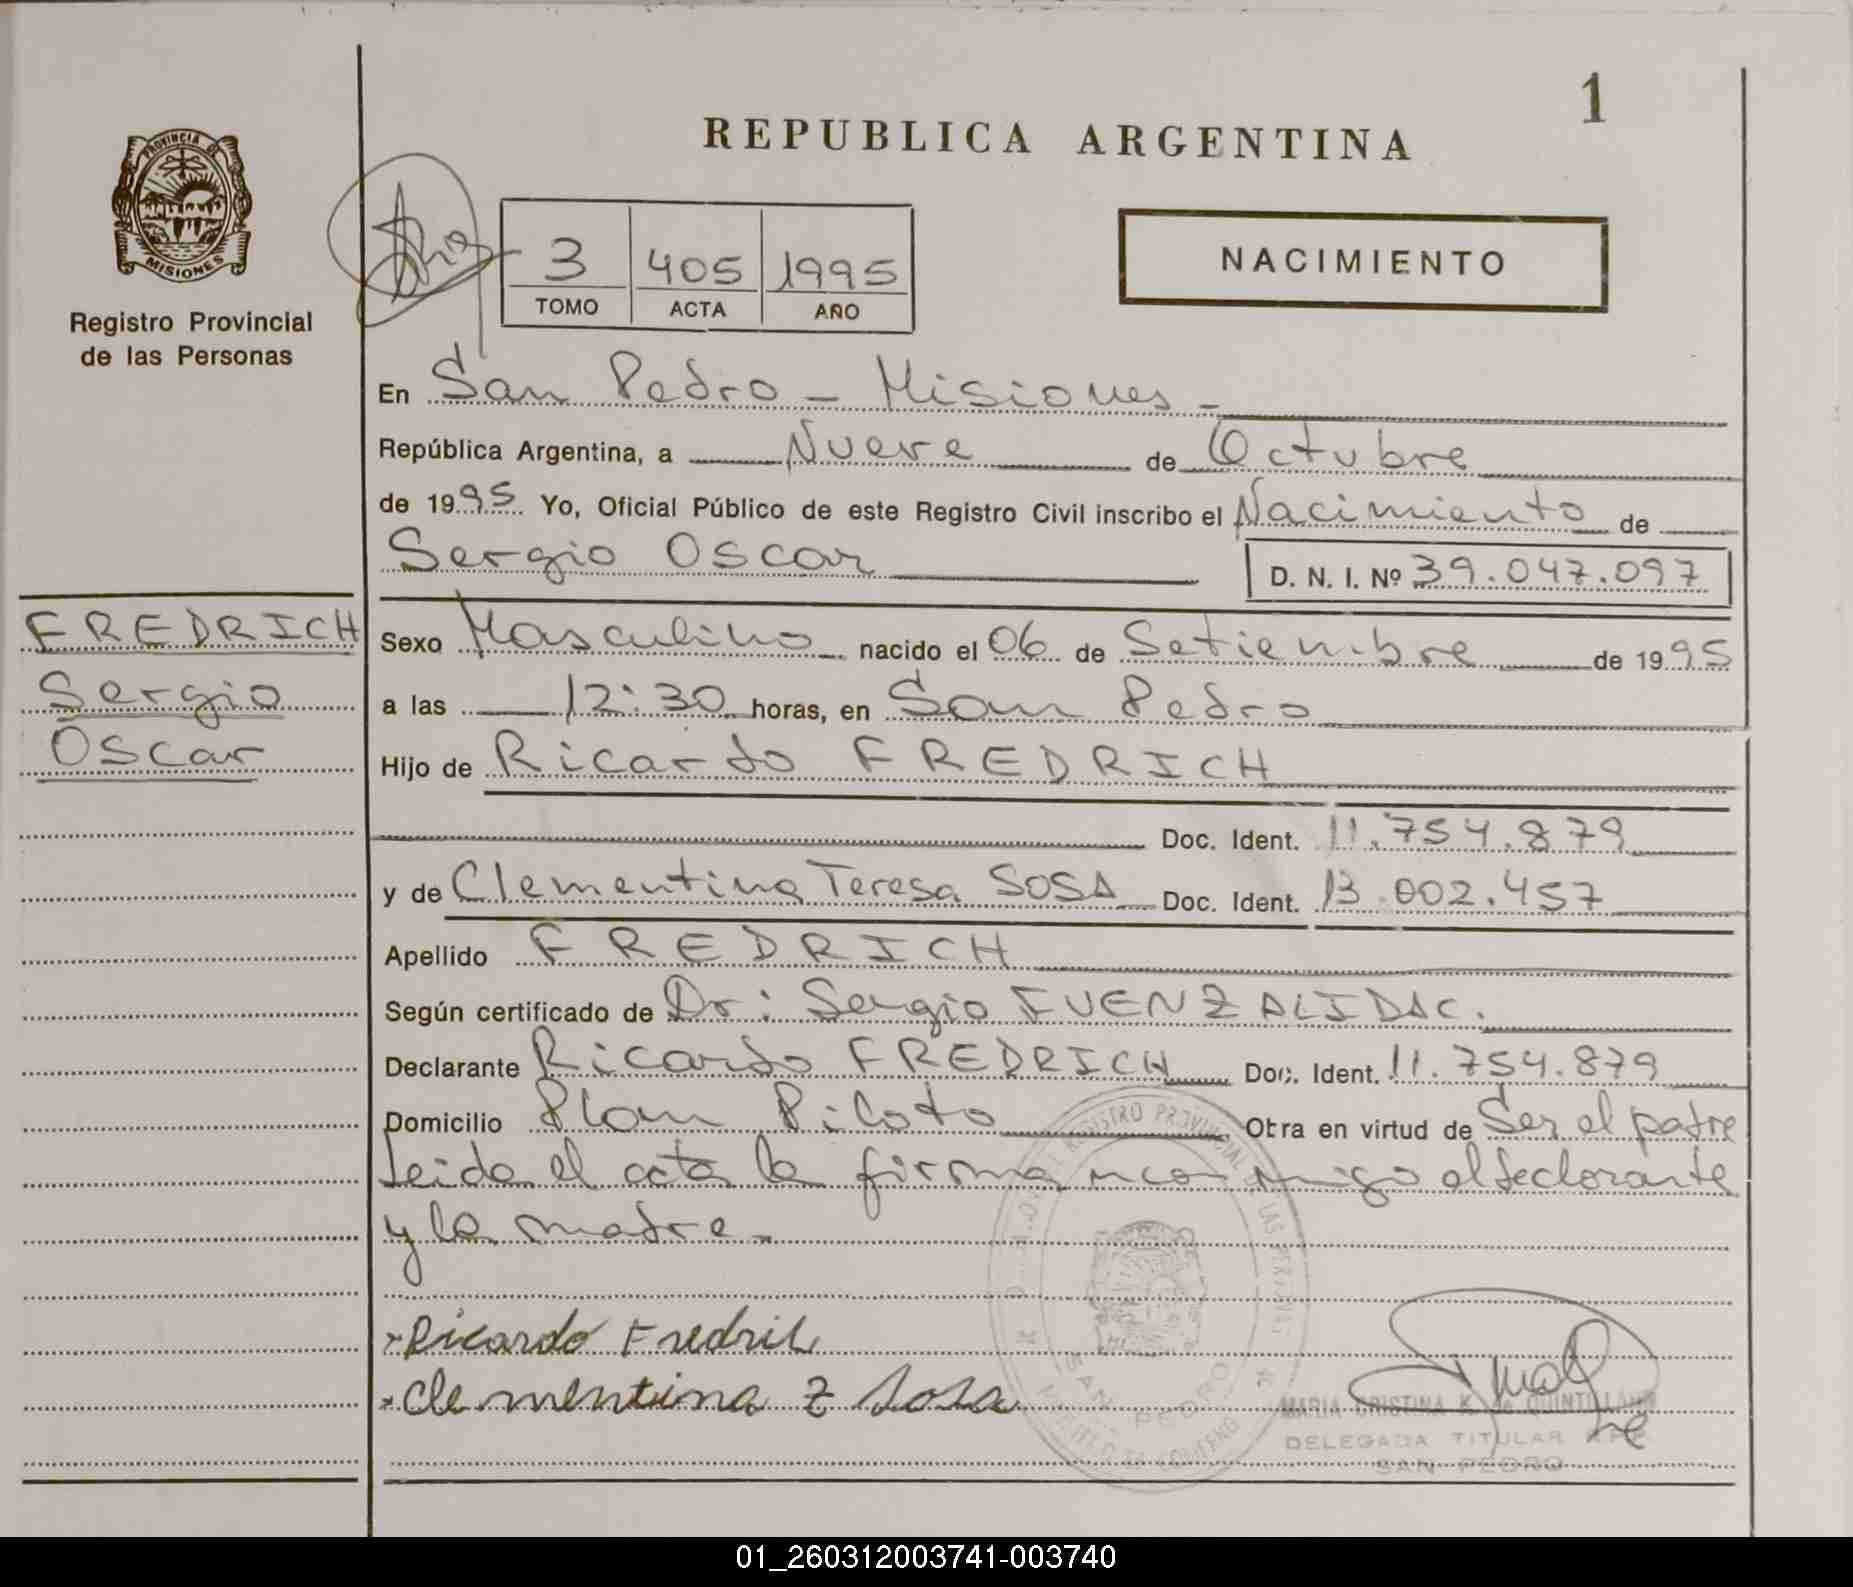 1
REPUBLICA ARGENTINA
PROVINCIA DE
MISIONES
Registro Provincial
de las Personas
3 405 1995
TOMO ACTA AÑO
NACIMIENTO
En San Pedro - Misiones -
República Argentina, a Nueve de Octubre
de 1995 Yo, Oficial Público de este Registro Civil inscribo el Nacimiento de
Sergio Oscar D. N. I. Nº 39.047.097
FREDRICH
Sergio
Oscar
Sexo Masculino nacido el 06 de Setiembre de 1995
a las 12:30 horas, en San Pedro
Hijo de Ricardo FREDRICH
Doc. Ident. 11.754.879
y de Clementina Teresa SOSA Doc. Ident. 13.002.457
Apellido FREDRICH
Según certificado de Dr: Sergio FUENZALIDA C.
Declarante Ricardo FREDRICH Doc. Ident. 11.754.879
Domicilio Plan Piloto Obra en virtud de Ser el padre
Leida el acta la firman conmigo el declarante
y la madre.
Ricardo Fredrich
Clementina T Sosa
REGISTRO PROVINCIAL DE LAS PERSONAS
SAN PEDRO
MINISTERIO DE GOBIERNO
MARIA CRISTINA K. de QUINTILLAN
DELEGADA TITULAR R.P.P.
SAN PEDRO
01_260312003741-003740